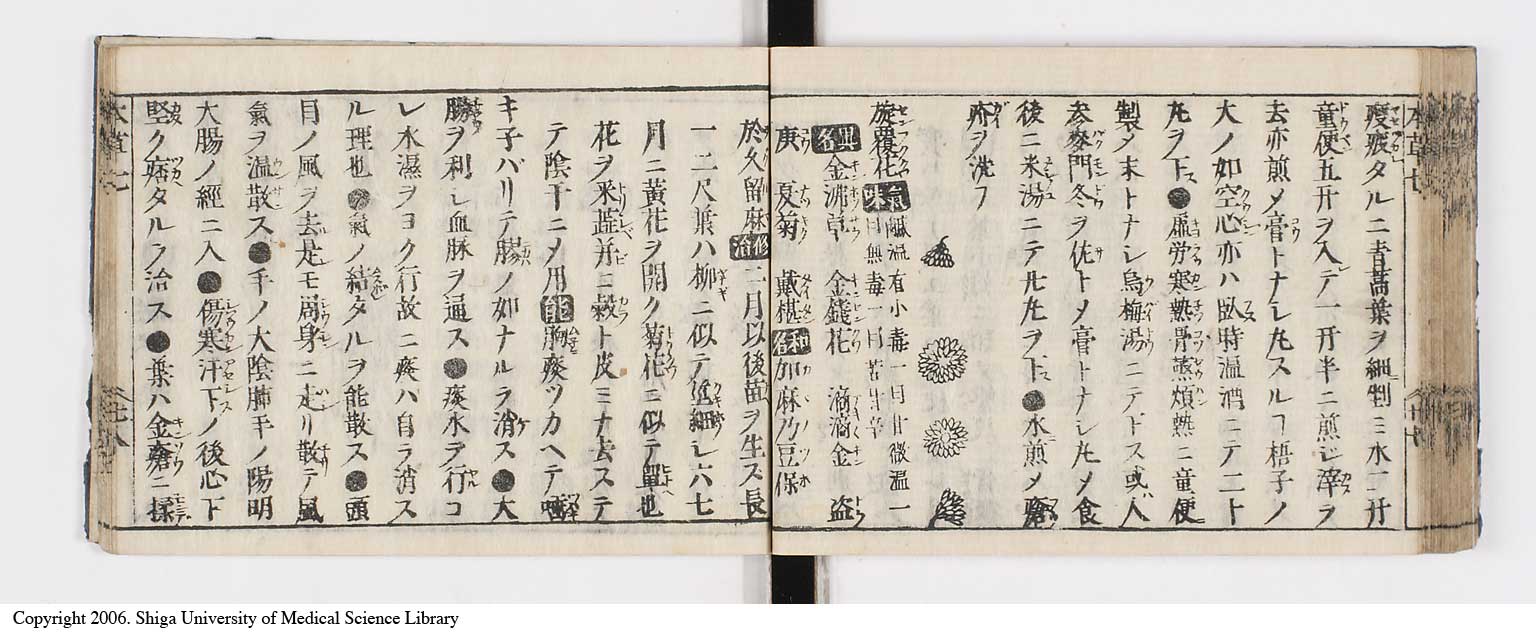 瘦疲タルニ青蒿葉ヲ細剉ミ水二升
童便五升ヲ入テ一升半ニ煎ジ滓ヲ
去亦煎メ膏トナシ丸スルコ梧子ノ
大ノ如空心亦ハ臥時温酒ニテ二十
丸ヲ下●虚労寒熱骨蒸煩熱ニ童便
製メ末トナシ烏梅湯ニテ下ス或人
参麥門冬ヲ佐トメ膏トナシ丸メ食
後ニ米湯ニテ丸丸ヲ下●水煎メ瘡
疥ヲ洗フ
旋覆花 氣味 鹹温有小毒一曰甘微温一
曰無毒一曰苦甘辛
異名 金沸草 金錢花 滴滴金 盗
庚 夏菊 戴椹 和名 加麻乃豆保
於久留麻 修治 二月以後苗ヲ生ズ長
一二尺葉ハ柳ニ似テ莖細シ六七
月ニ黄花ヲ開ク菊花ニ似テ單也
花ヲ釆蕋并ニ穀ト皮ミナ去ステ
テ陰干ニメ用 能 胸痰ツカヘテ嚏
キ子バリテ膠ノ如ナルヲ消ス●大
腸ヲ利シ血脉ヲ通ス●痰水ヲ行コ
レ水濕ヲヨク行故ニ痰ハ自ラ消ス
ル理也●氣ノ結タルヲ能散ス●頭
目ノ風ヲ去是モ周身ニ走リ散テ風
氣ヲ温散ス●手ノ大陰肺手ノ陽明
大腸ノ經ニ入●傷寒汗下ノ後心下
堅ク痞タルヲ治ス●葉ハ金瘡ニ揉
Copyright 2006. Shiga University of Medical Science Library